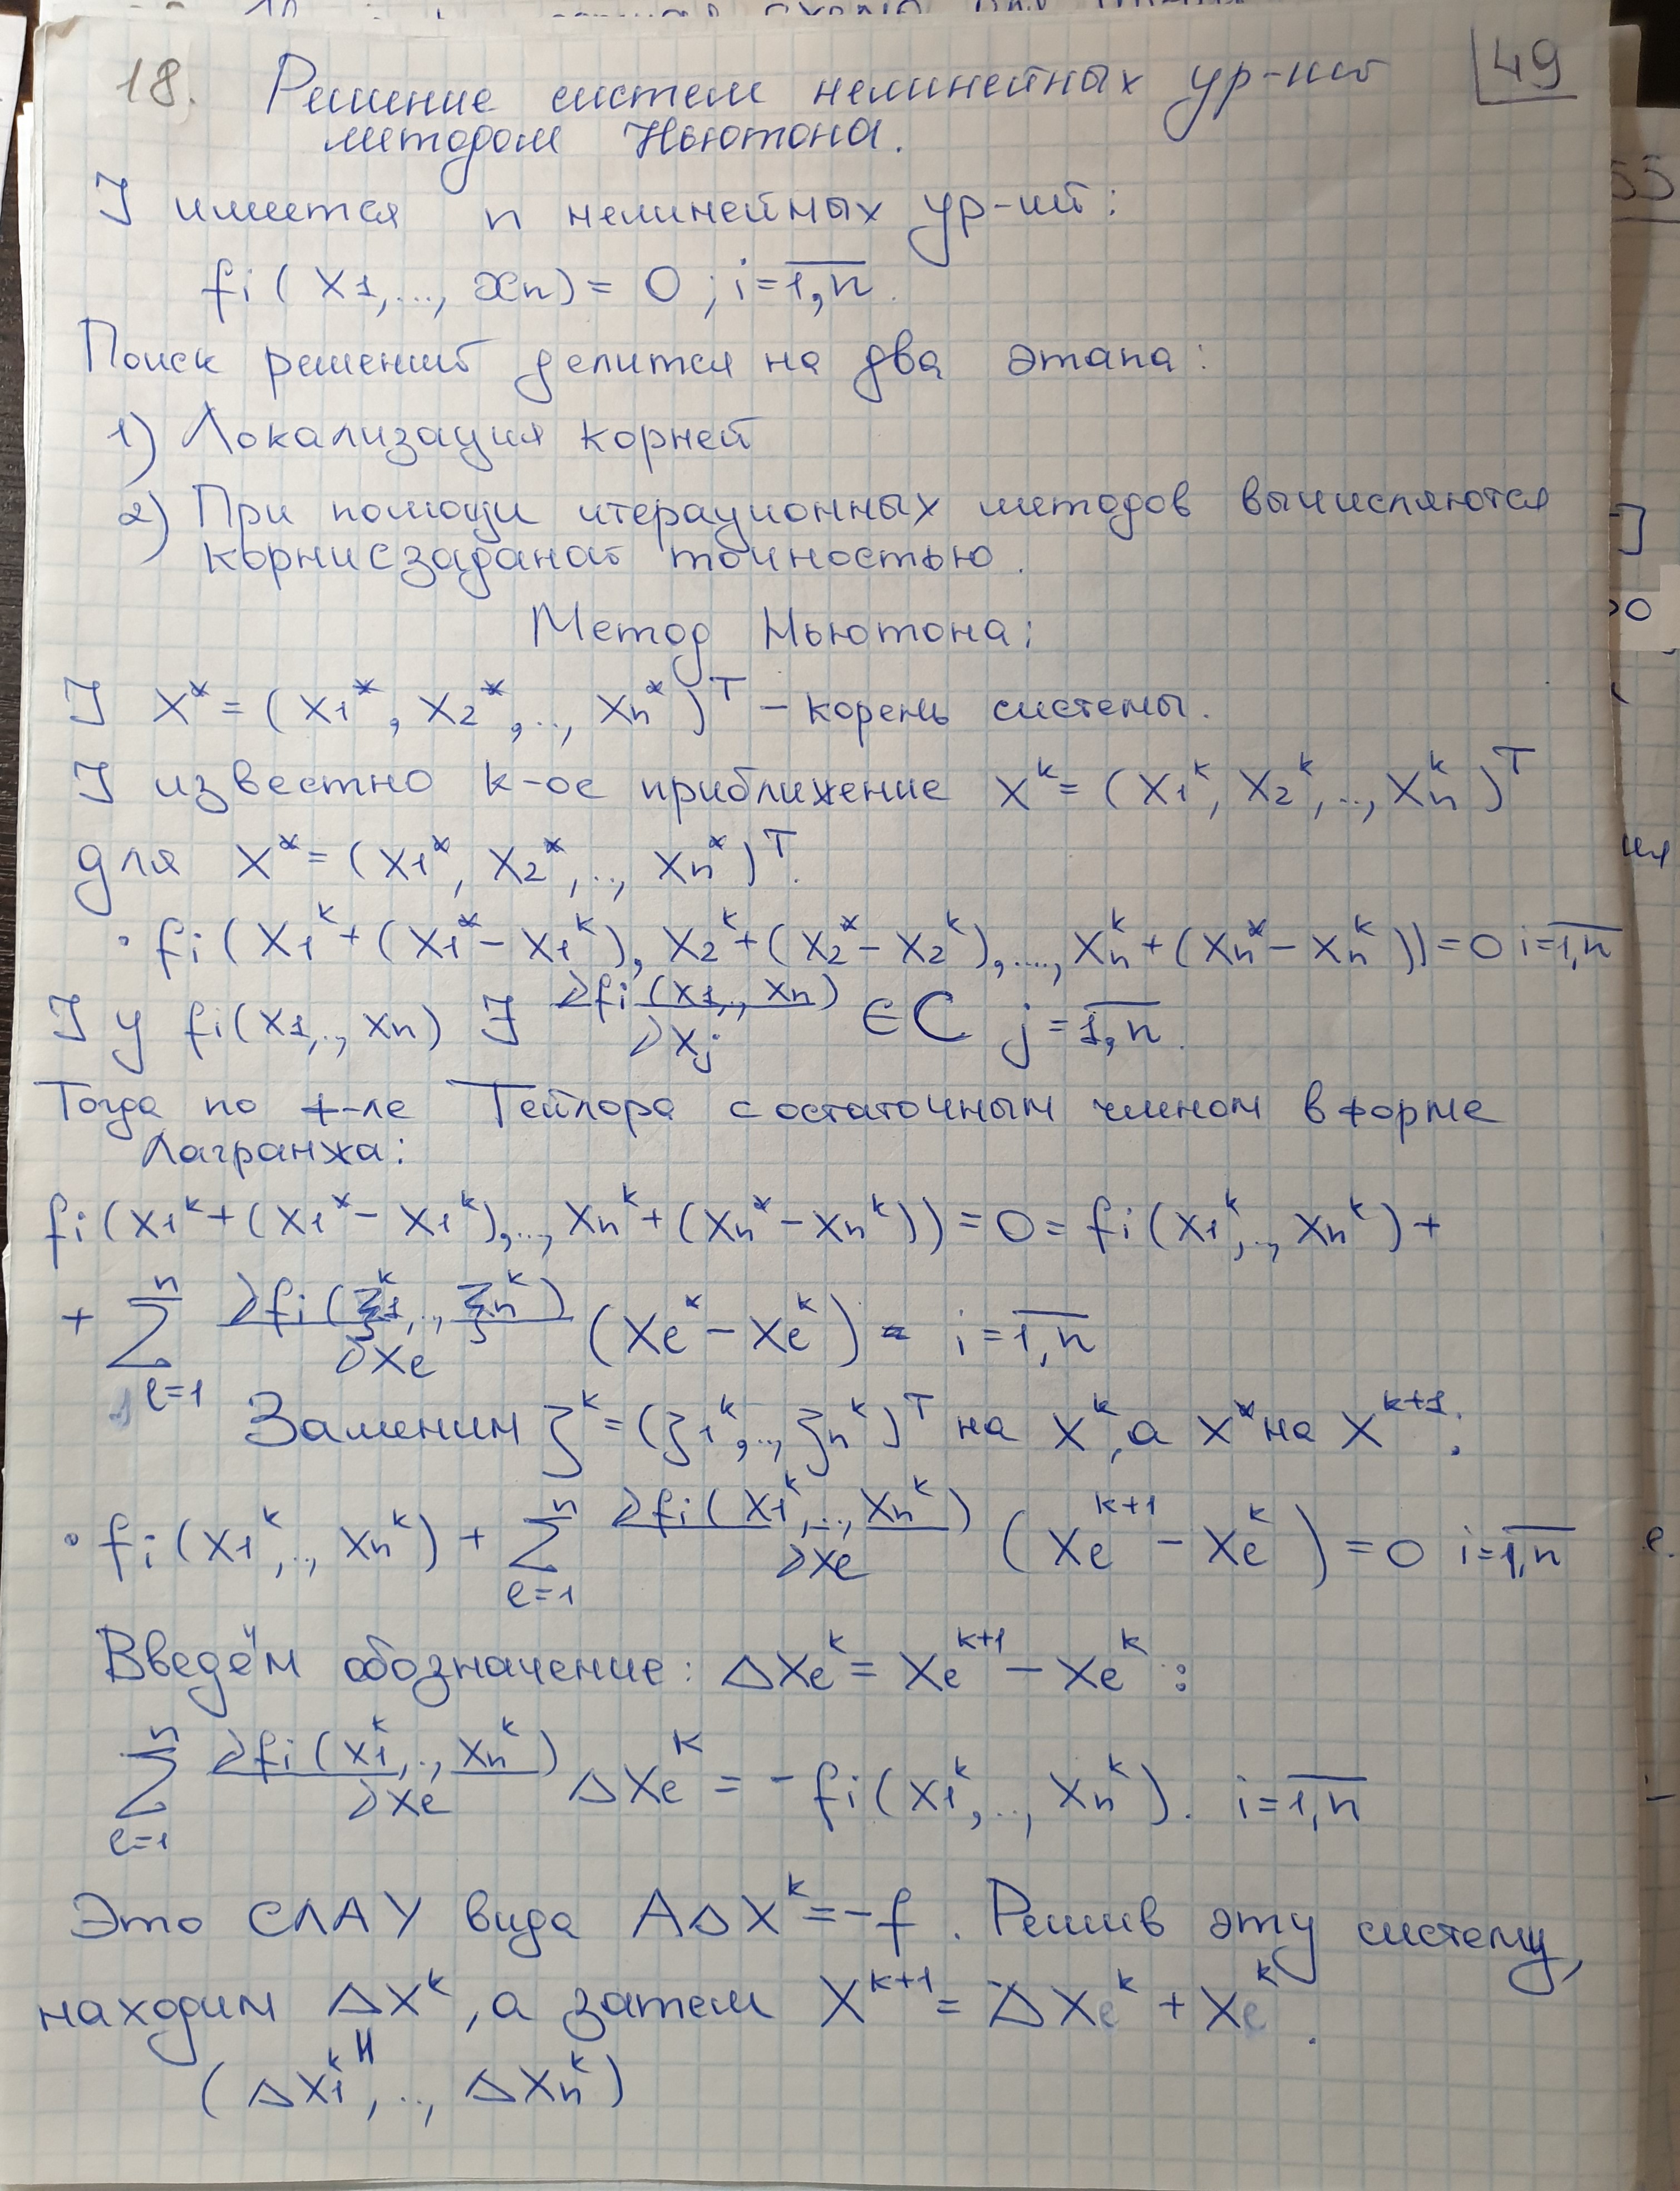 18. Решение систем нелинейных ур-ий 49
методом Ньютона.
] имеется n нелинейных ур-ий:
fi(x1,.., xn) = 0; i=1,n.
Поиск решений делится на два этапа:
1) Локализация корней
2) При помощи итерационных методов вычисляются
корни с заданой точностью.
Метод Ньютона:
] X* = (X1*, X2*,.., Xn*)ᵀ – корень системы.
] известно k-ое приближение Xᵏ = (X1ᵏ, X2ᵏ,.., Xnᵏ)ᵀ
для X* = (X1*, X2*,.., Xn*)ᵀ.
• fi(X1ᵏ+(X1*–X1ᵏ), X2ᵏ+(X2*–X2ᵏ),...., Xnᵏ+(Xn*–Xnᵏ))=0 i=1,n
] у fi(X1,.., Xn) ∃ ∂fi(X1,.., Xn)/∂Xj ∈ C j=1,n.
Тогда по ф-ле Тейлора с остаточным членом в форме
Лагранжа:
fi(X1ᵏ+(X1*–X1ᵏ),.., Xnᵏ+(Xn*–Xnᵏ))=0= fi(X1ᵏ,.., Xnᵏ)+
+ ∑ⁿ_{l=1} ∂fi(ξ1ᵏ,.., ξnᵏ)/∂Xl (Xl* – Xlᵏ) = i=1,n
Заменим ξᵏ=(ξ1ᵏ,.., ξnᵏ)ᵀ на Xᵏ, а X* на Xᵏ⁺¹:
• fi(X1ᵏ,.., Xnᵏ) + ∑ⁿ_{l=1} ∂fi(X1ᵏ,.., Xnᵏ)/∂Xl (Xlᵏ⁺¹ – Xlᵏ) = 0 i=1,n
Введём обозначение: ΔXlᵏ = Xlᵏ⁺¹ – Xlᵏ :
∑ⁿ_{l=1} ∂fi(X1ᵏ,.., Xnᵏ)/∂Xl ΔXlᵏ = –fi(X1ᵏ,.., Xnᵏ). i=1,n
Это СЛАУ вида AΔXᵏ=–f. Решив эту систему,
находим ΔXᵏ, а затем Xᵏ⁺¹ = ΔXlᵏ + Xlᵏ.
(ΔX1ᵏ,.., ΔXnᵏ)